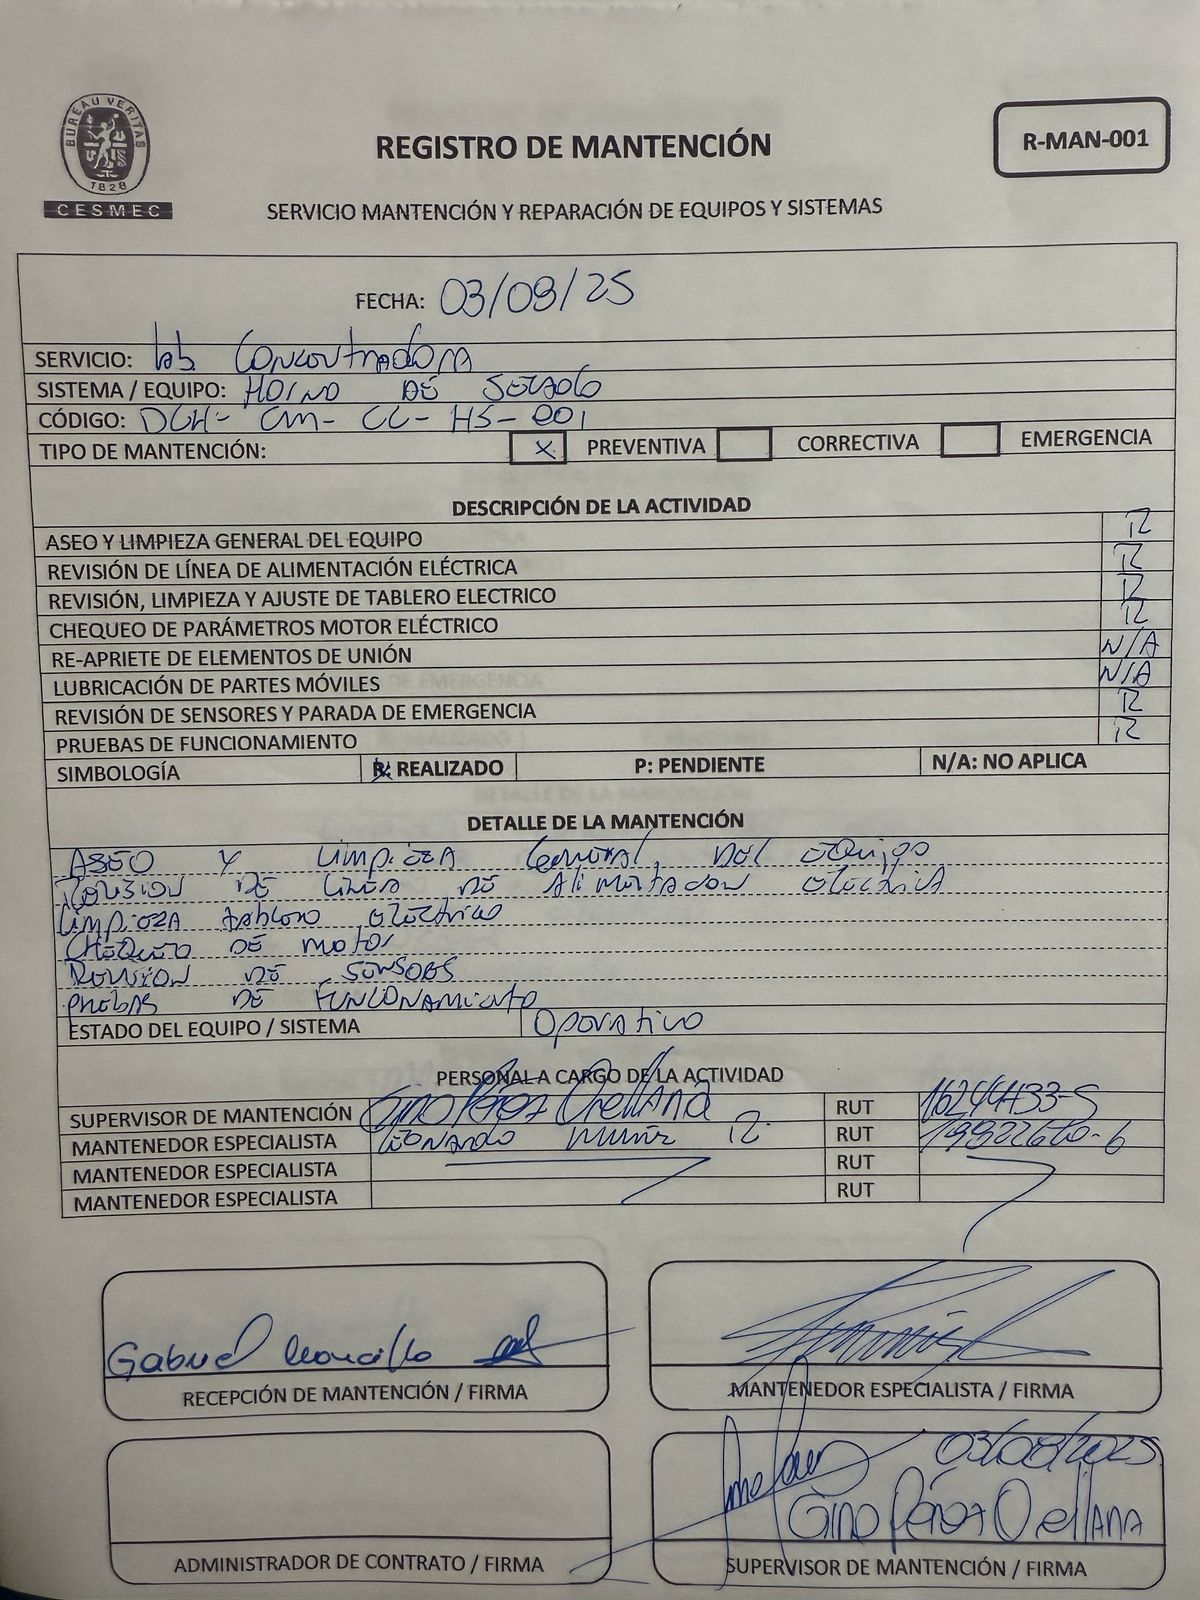 BUREAU VERITAS
1828
CESMEC
REGISTRO DE MANTENCIÓN
R-MAN-001
SERVICIO MANTENCIÓN Y REPARACIÓN DE EQUIPOS Y SISTEMAS
FECHA: 03/08/25
SERVICIO: lab Concentradora
SISTEMA / EQUIPO: HORNO DE SECADO
CÓDIGO: DCH- CM- CC- HS- 001
TIPO DE MANTENCIÓN: X PREVENTIVA CORRECTIVA EMERGENCIA
DESCRIPCIÓN DE LA ACTIVIDAD
ASEO Y LIMPIEZA GENERAL DEL EQUIPO R
REVISIÓN DE LÍNEA DE ALIMENTACIÓN ELÉCTRICA R
REVISIÓN, LIMPIEZA Y AJUSTE DE TABLERO ELECTRICO R
CHEQUEO DE PARÁMETROS MOTOR ELÉCTRICO R
RE-APRIETE DE ELEMENTOS DE UNIÓN N/A
LUBRICACIÓN DE PARTES MÓVILES N/A
REVISIÓN DE SENSORES Y PARADA DE EMERGENCIA R
PRUEBAS DE FUNCIONAMIENTO R
SIMBOLOGÍA R: REALIZADO P: PENDIENTE N/A: NO APLICA
DETALLE DE LA MANTENCIÓN
ASEO Y LIMPIEZA General DEL equipo
Revision DE Linea DE Alimentacion electrica
Limpieza tablero electrico
CHEQUEO DE motor
Revision DE SENSORES
PRUEBAS DE FUNCIONAMIENTO
ESTADO DEL EQUIPO / SISTEMA Operativo
PERSONAL A CARGO DE LA ACTIVIDAD
SUPERVISOR DE MANTENCIÓN Gino Pérez Orellana RUT
MANTENEDOR ESPECIALISTA LEONARDO MUÑOZ R. RUT
MANTENEDOR ESPECIALISTA RUT
MANTENEDOR ESPECIALISTA RUT
Gabriel
RECEPCIÓN DE MANTENCIÓN / FIRMA
MANTENEDOR ESPECIALISTA / FIRMA
03/08/2025
Gino Pérez Orellana
ADMINISTRADOR DE CONTRATO / FIRMA
SUPERVISOR DE MANTENCIÓN / FIRMA